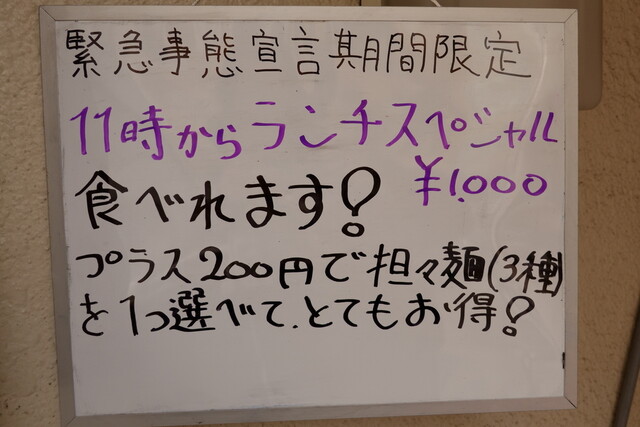 緊急事態宣言期間限定
11時からランチスペシャル
食べれます! ¥1,000
プラス200円で担々麺(3種)
を1つ選べて、とてもお得!